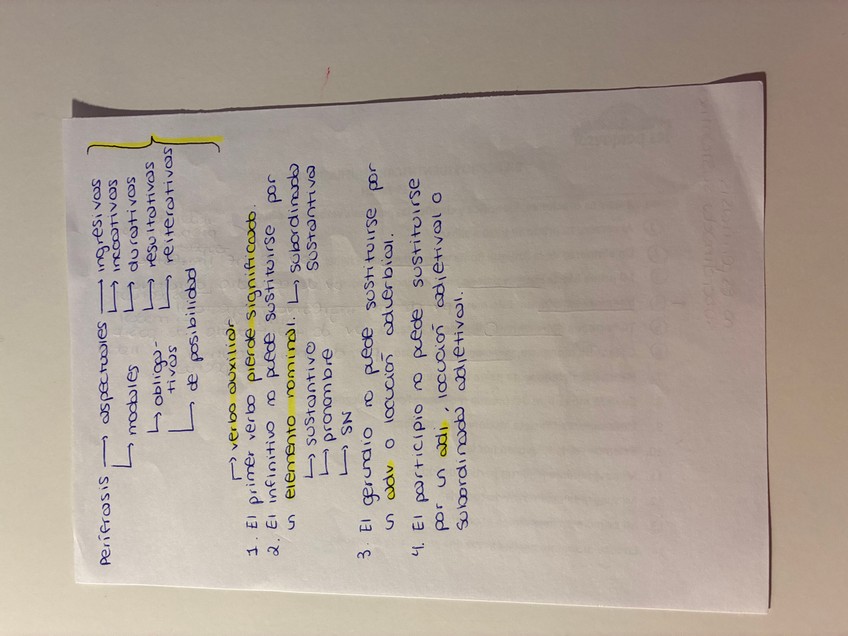 Perífrasis → aspectuales → ingresivas
↳ modales ↳ incoativas
↳ obliga- ↳ durativas
tivas ↳ resultativas
↳ de posibilidad ↳ reiterativas
↱ verbo auxiliar
1. El primer verbo pierde significado.
2. El infinitivo no puede sustituirse por
un elemento nominal. ↳ subordinada
↳ sustantivo sustantiva
↳ pronombre
↳ SN
3. El gerundio no puede sustituirse por
un adv o locución adverbial.
4. El participio no puede sustituirse
por un adj, locución adjetival o
subordinada adjetival.